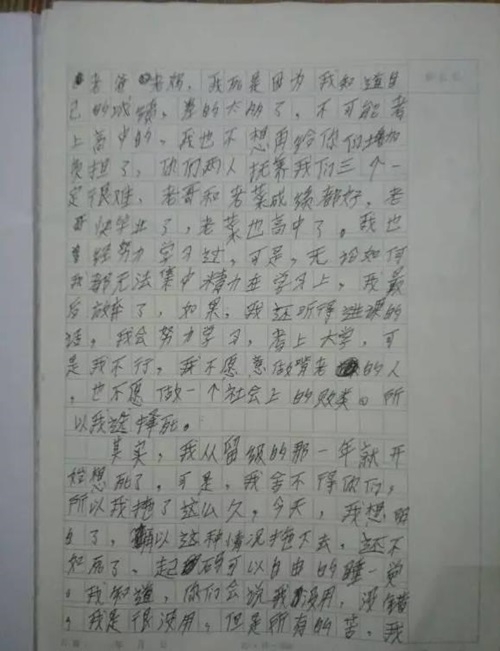 老爸老妈,我死是因为我知道自
己的成绩,差的太多了,不可能考
上高中的,我也不想再给你们增加
负担了,你们两人抚养我们三个一
定很难,老哥和老叶成绩都好,老
哥快毕业了,老叶也高中了。我也
曾经努力学习过,可是,无论如何
我都无法集中精力在学习上,我最
后放弃了,如果,我还听得进课的
话,我会努力学习,考上大学,可
是我不行,我不愿意做啃老的人
,也不愿做一个社会上的败类。所
以我选择死。
其实,我从留级的那一年就开
始想死了,可是,我舍不得你们,
所以我拖了这么久,今天,我想明
白了,以这种情况拖下去,还不
如死了,起码可以自由的睡一觉
。我知道,你们会说我没用,没错
,我是很没用,但是所有的苦,我